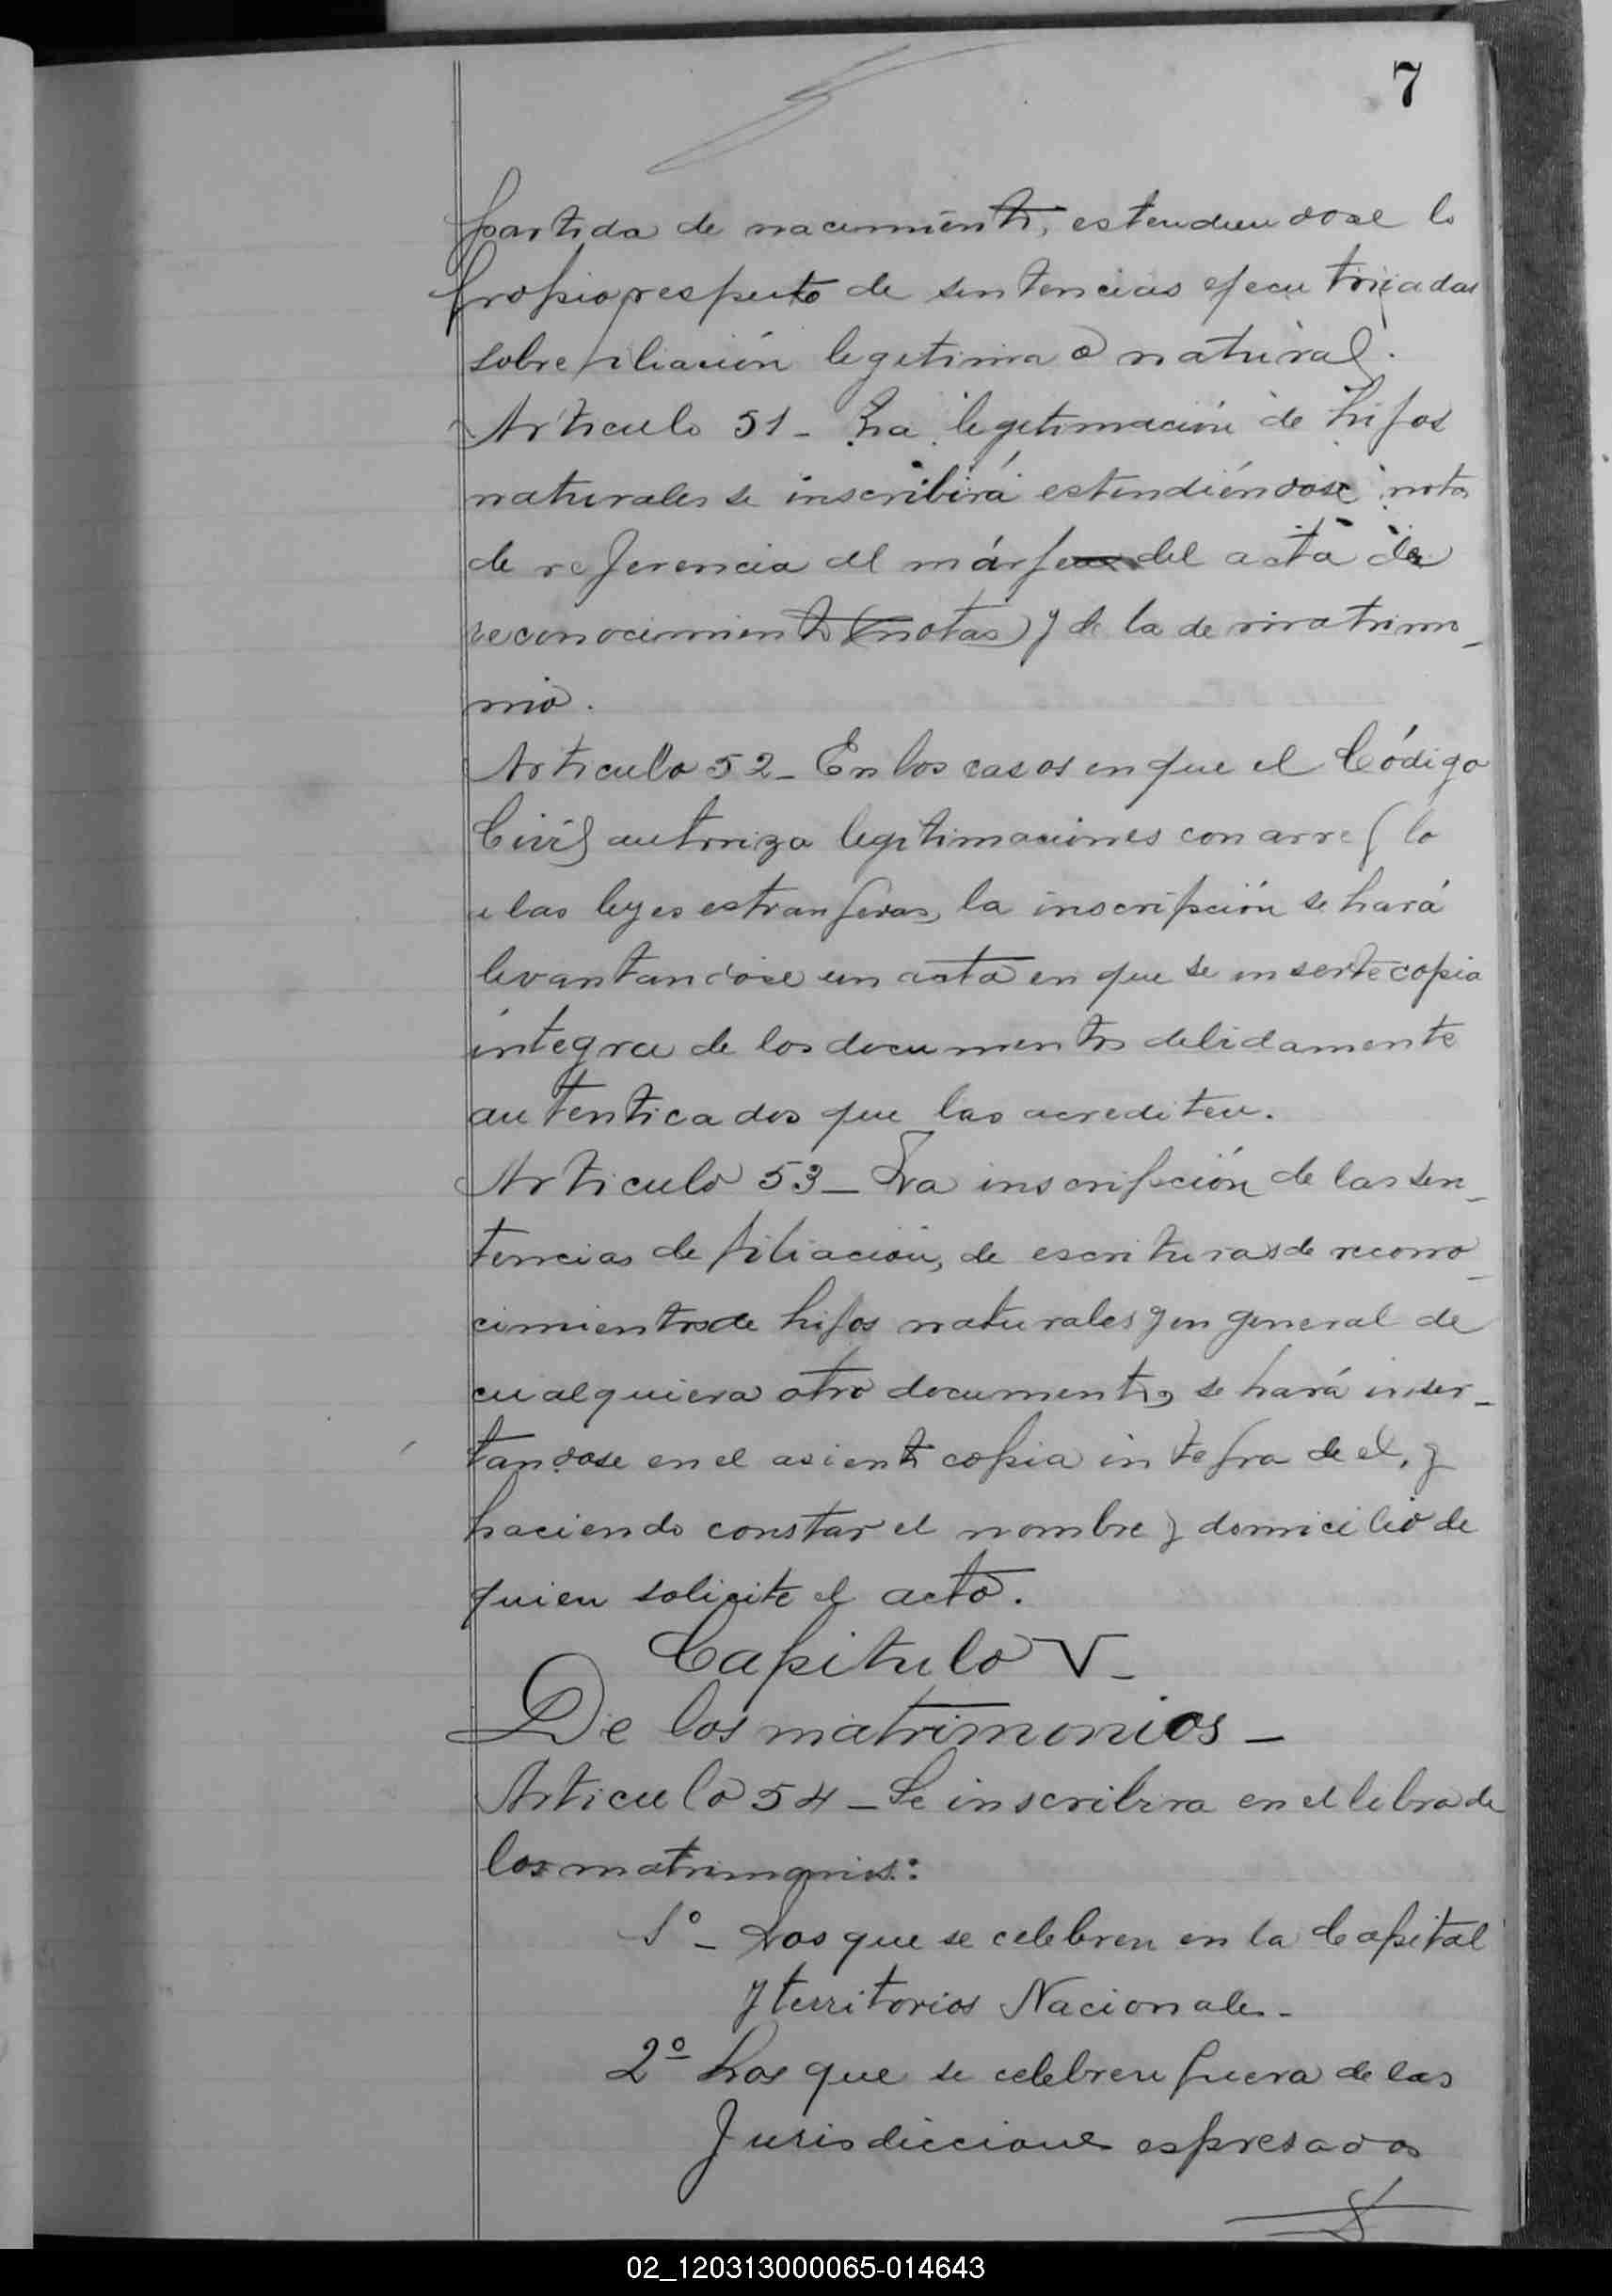 7
partida de nacimiento, estendiendose lo
propio respecto de sentencias ejecutoriadas
sobre filiación legitima o natural.
Articulo 51 - La legitimación de hijos
naturales se inscribirá estendiéndose nota
de referencia al márjen del acta de
reconocimiento (notas) y de la de matrimo-
nio.
Articulo 52 - En los casos en que el Código
Civil autoriza legitimaciones con arreglo
a las leyes estranjeras, la inscripción se hará
levantandose un acta en que se inserte copia
íntegra de los documentos debidamente
autenticados que las acrediten.
Articulo 53 - La inscripción de las sen-
tencias de filiación, de escrituras de recono-
cimientos de hijos naturales y en general de
cualquiera otro documento, se hará inser-
tandose en el asiento copia integra de el, y
haciendo constar el nombre y domicilio de
quien solicite el acto.
Capitulo V -
De los matrimonios -
Articulo 54 - Se inscribira en el libro de
los matrimonios:
1º - Los que se celebren en la Capital
y territorios Nacionales -
2º Los que se celebren fuera de las
Jurisdicciones espresados
02_120313000065-014643